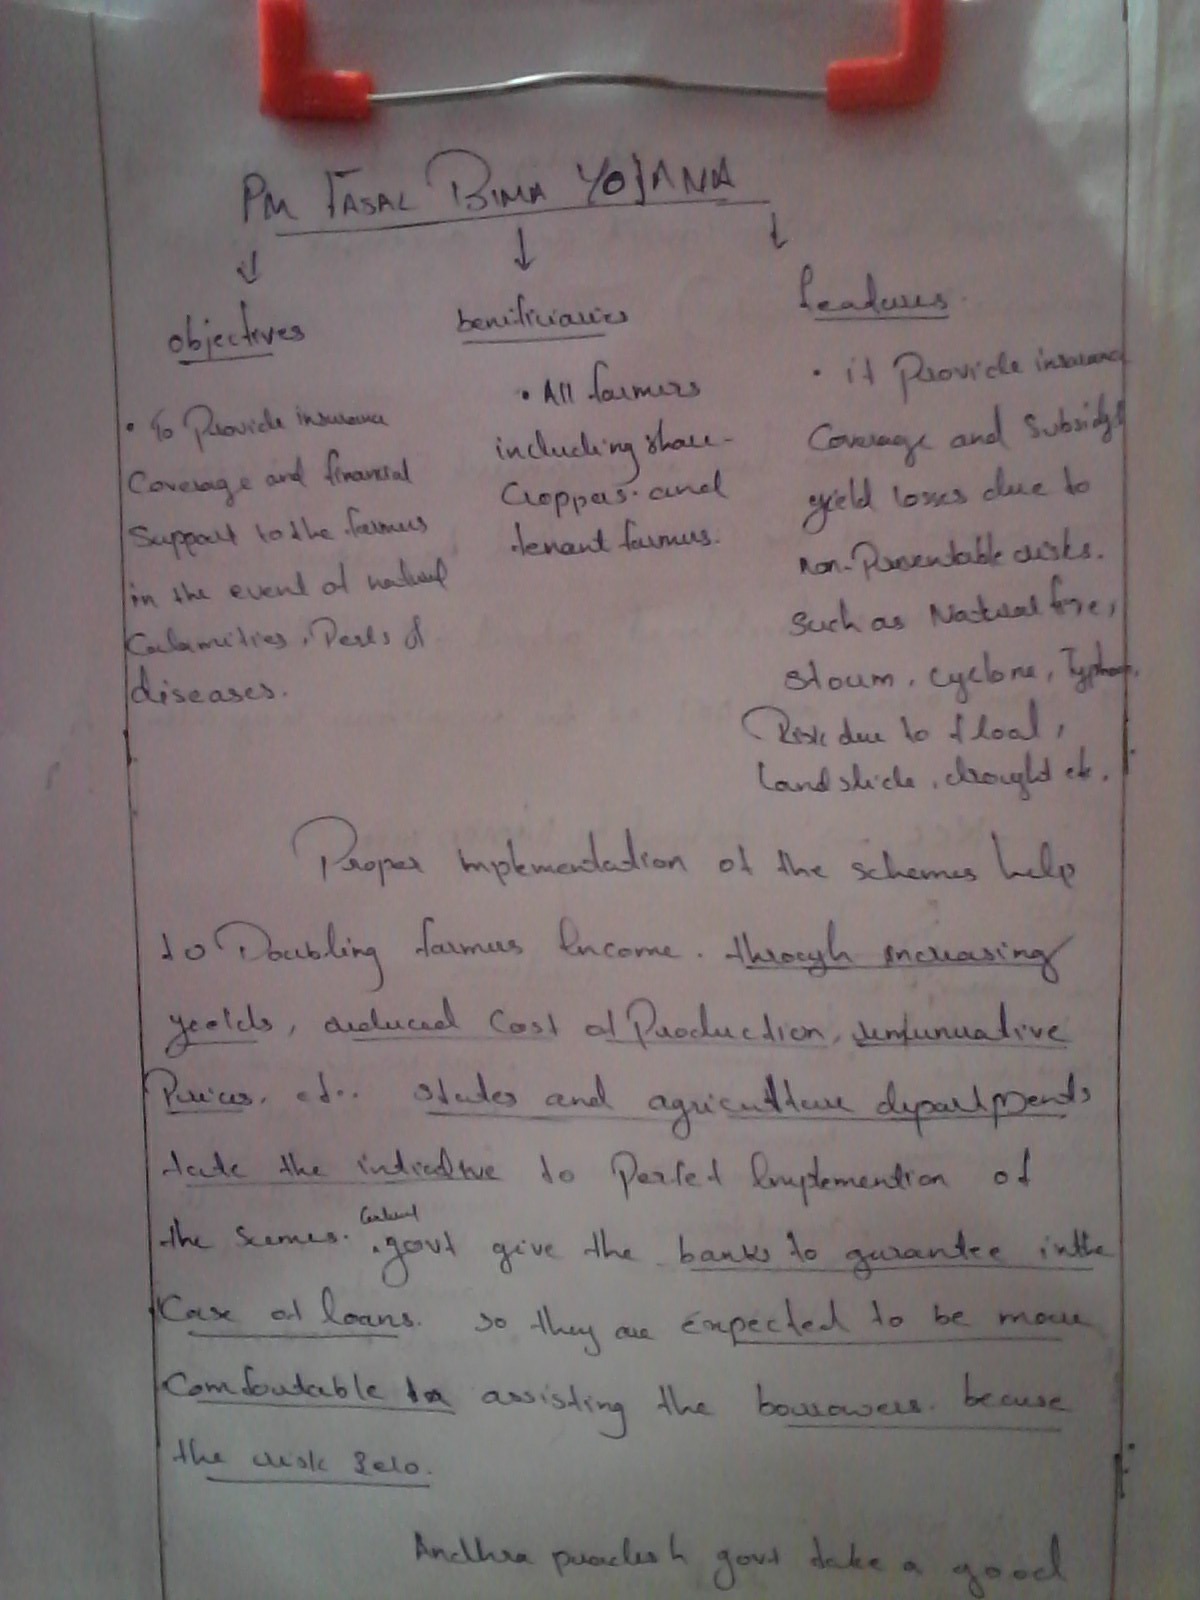 PM FASAL BIMA YOJANA
objectives
• To Provide insurance
Coverage and financial
Support to the farmers
in the event of natural
Calamities, Pests &
diseases.
benificiaries
• All farmers
including share-
Croppers and
tenant farmers.
features
• it Provide insurance
Coverage and Subsidy
yield losses due to
non-Preventable risks.
Such as Natural fire,
storm, cyclone, Typhoon,
Risk due to
Landslide, drought etc.
Proper implementation of the schemes help
to Doubling farmers Income. through increasing
yields, reduced Cost of Production,
Prices, etc.. states and agriculture departments
take the to Perfect of
the Scemes. Central govt give the banks to gurantee in the
Case of loans. so they are expected to be more
Comfortable assisting the borrowers. becuse
the risk zero.
Andhra pradesh govt take a good